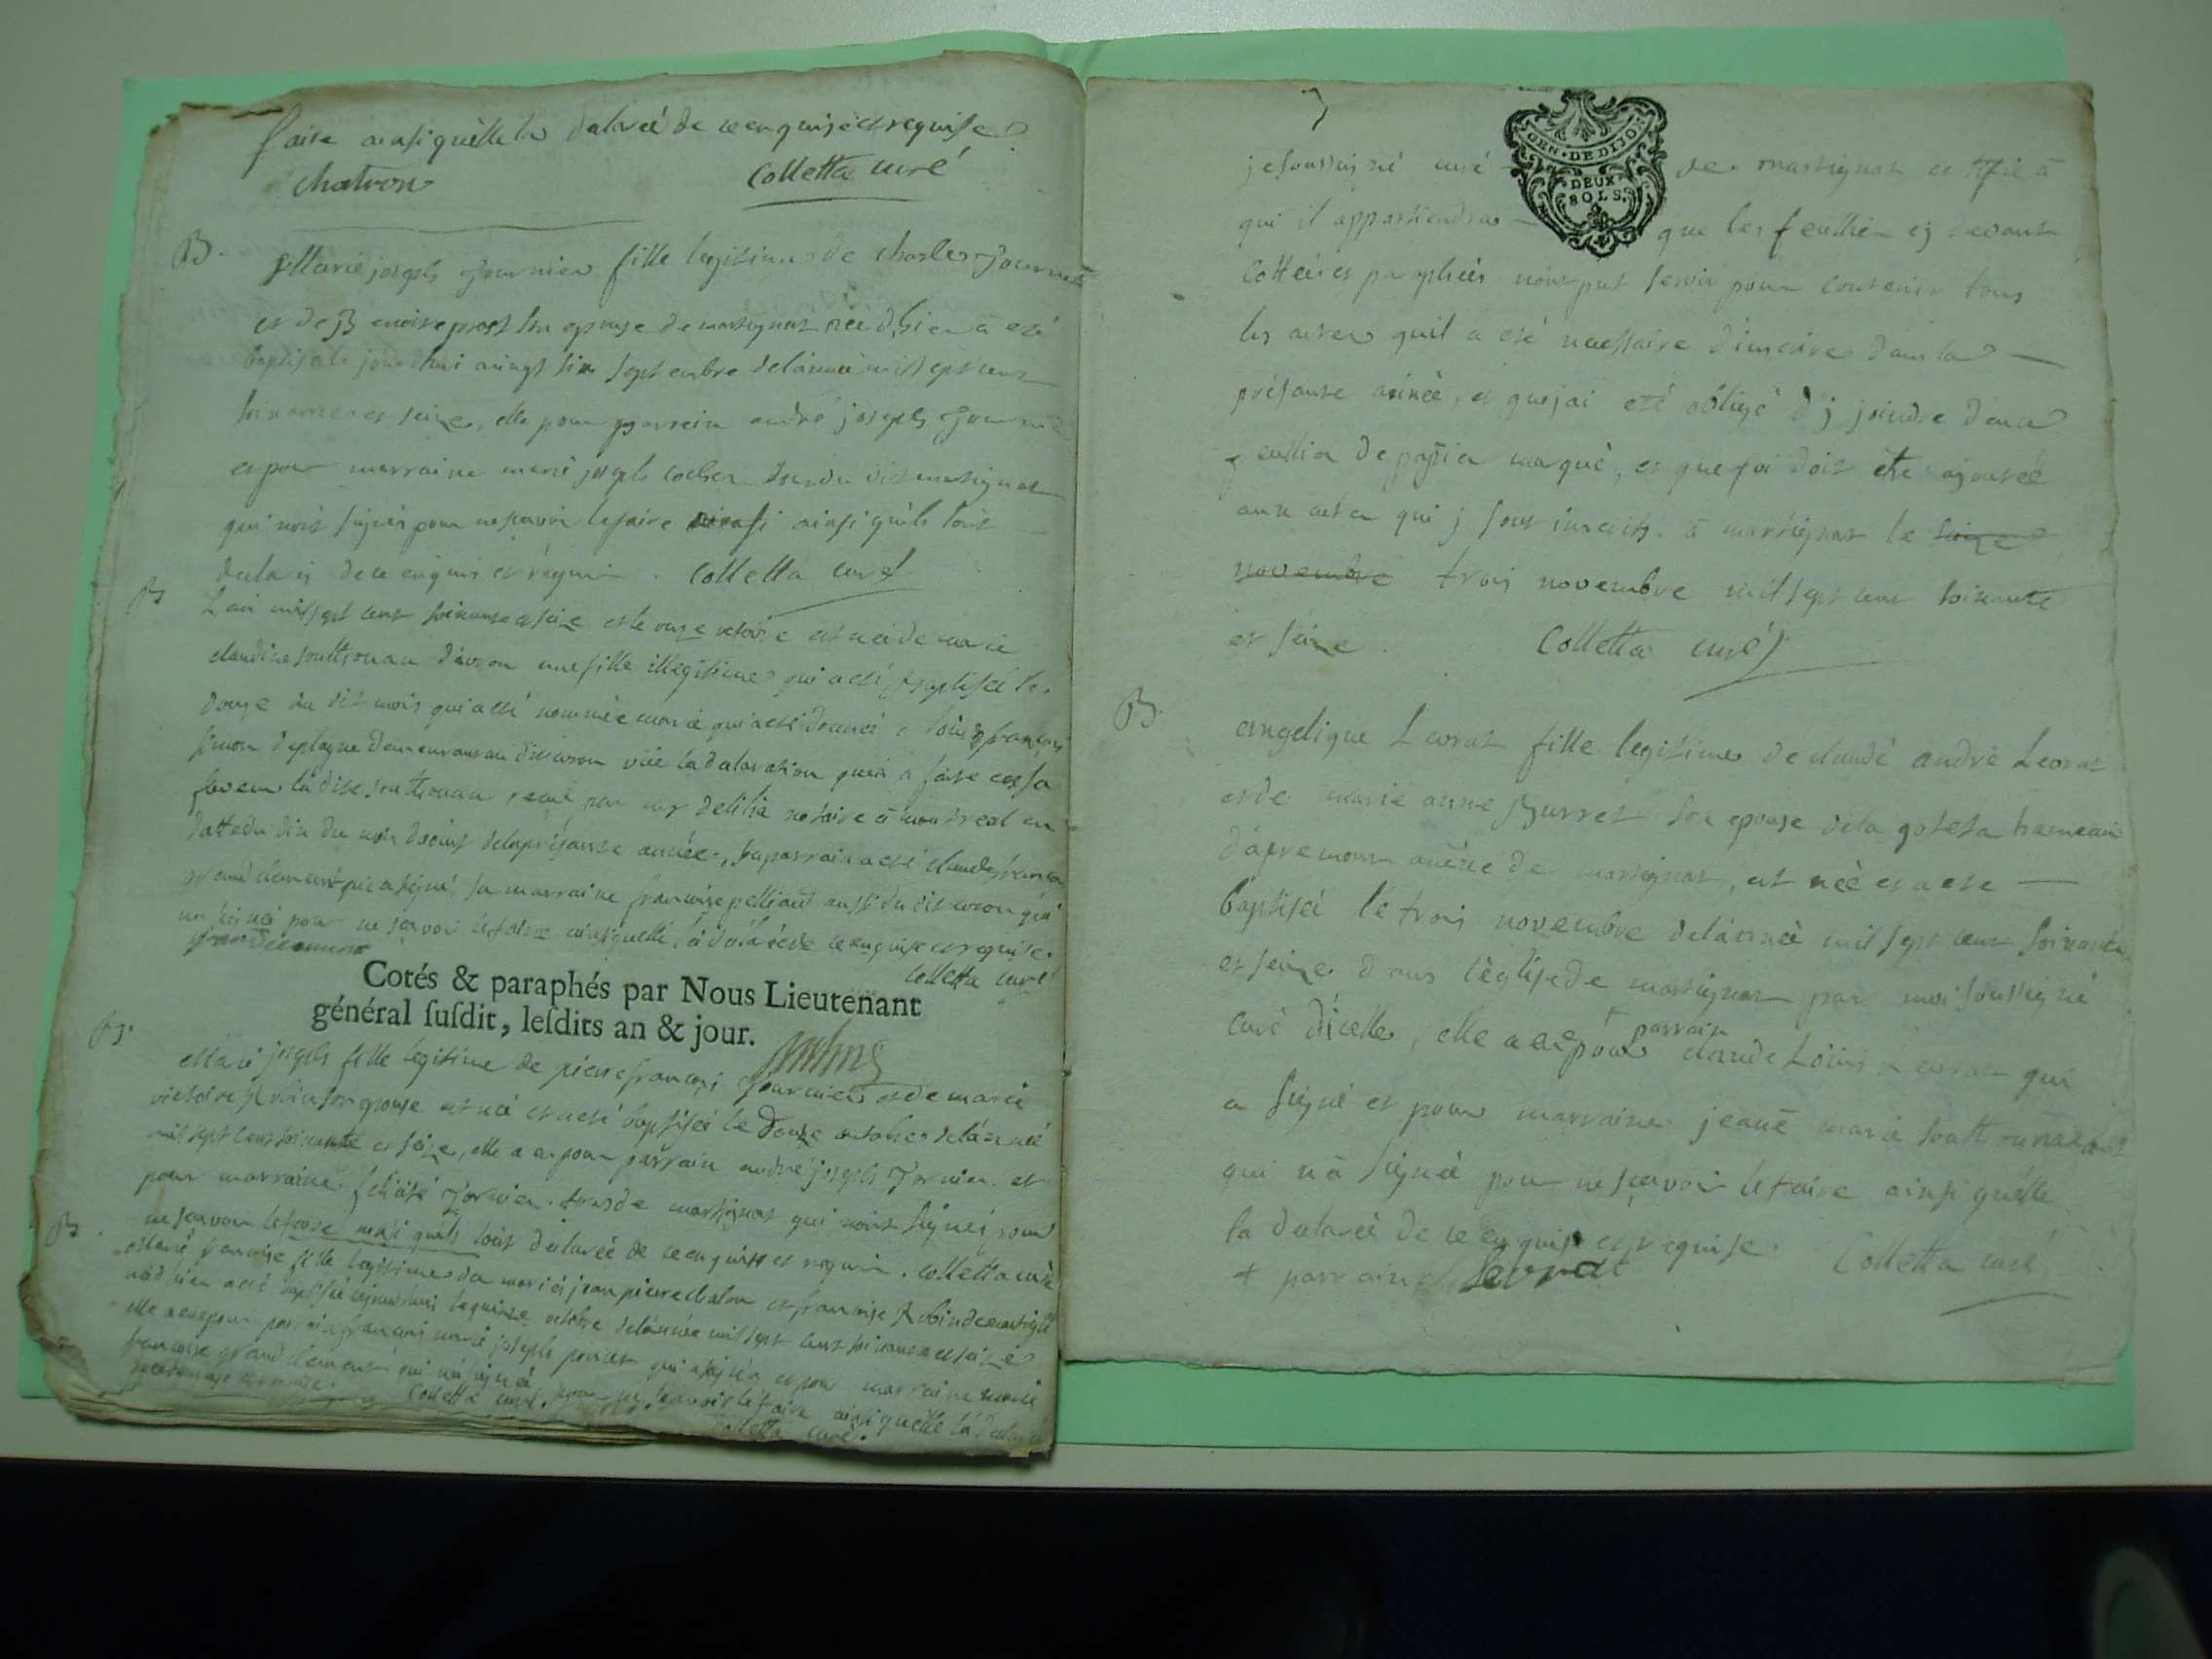 faire ainsi quèlle la dalareé de ce enquise et requise
chatron Colletta curé
B.
Marie joseph fournier fille legitime de charles fournier
et de B enoite prost son epouse de martignat née d'hier a eté
baptisée le jourdhui vingt six septembre delánneé mil sept cent
soixante et seize, elle pour parrain andré joseph fournier
et pour marraine marie joseph tous du dit martignat
qui nont signés pour ne savoir lefaire ainsi quils lont
dalarés de ce enquis et réquis. Colletta curé
B
L'an mil sept cent soixante et seize et le onze octobre est neé de marie
claudine soutthonan dávron une fille illegitime qui a eté baptiseé le
douze du dit mois qui a eté nommée marie qui a eté donneé a loüis françois
simon demeurant au dit vüe la dalaration quen a faite
la dite soutthonan reçüe par delilia notaire à montreal en
datte du dix du mois daoüst delaprésante anneé, sa parrain a eté claude françois
grand clement qui a signé sa marraine francoise pelliand aussi du dit qui
na signeé pour ne sçavoir lefaire ainsiquelle là dalareé de ce enquise et requise.
grandclement Colletta curé
Cotés & paraphés par Nous Lieutenant
général ſuſdit, leſdits an & jour.
B.
Marie joseph fille legitime de pierre françois fournier et de marie
victoire Robin son epouse est neé et a eté baptiseé le douze octobre delánneé
mil sept cent soixante et seize, elle a eu pour parrain andré joseph fornier et
pour marraine fornier tous de martignat qui nont signés pour
ne sçavoir lefaire ainsi quils lont dalareé de ce enquis et requis. Colletta curé
B.
Marie francoise fille legitime de jean pierre chatron et francoise Robin de martignat
neé hier a eté baptiseé aujourdhui le quinze octobre delánneé mil sept cent soixante et seize
elle a eu pour parrain françois marie joseph poncet qui a signé et pour marraine marie
francoise grand clement qui na signeé pour ne sçavoir lefaire ainsi quélle la dalareé
de ce enquise et requise. Colletta curé.
Colletta curé.
7
GEN. DE DIJON
DEUX
SOLS.
je soussigné curé de martignat certifie à
qui il appartiendra que les feuillies cy devant
cotteés et paraphées nont put servir pour contenir tous
les actes quil a eté necessaire dinscrire dans la
présante anneé, et que jai eté obligé dy joindre deux
feuillies de papier marqué, et que foi doit être ajouteé
aux actes qui y sont inscrits. à martignat le seize
novembre trois novembre mil sept cent soixante
et seize. Colletta curé
B.
angelique Levrat fille legitime de claude andré Levrat
et de marie anne Burret son epouse dela goteta hameau
dápremont anéxe de martignat, est neé et a eté
baptiseé le trois novembre delánneé mil sept cent soixante
et seize dans léglise de martignat par moi soussigné
curé dicelle, elle a eu pour + parrain claude Loüis Levrat qui
a signé et pour marraine jeane marie soutthonnax
qui na signeé pour ne sçavoir lefaire ainsi quélle
la dalareé de ce enquise et requise. Colletta curé
+ parrain Levrat